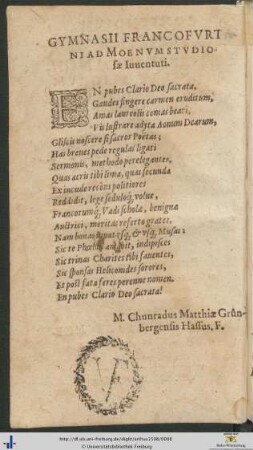 GYMNASII FRANCOFVRT
NI AD MOENVM STVDIO-
sæ Iuuentuti.
EN pubes Clario Deo sacrata,
Gaudes fingere carmen eruditum,
Amas laureolis comas beari,
Vis lustrare adyta Aonum Dearum,
Gliscis noscere si sacros Poëtas;
Has breues pede regulas ligati
Sermonis, methodo perelegantes,
Quas acris tibi lima, quas secunda
Ex incude recens politiores
Reddidit, lege sedulòq́; volue,
Francorumq́; Vadi schola, benignæ
Authori, meritas referto grates,
Nam bonas usq́; & vsq́; Musas:
Sic te Phœbus indipisces
Sic trinas Charites tibi fauentes,
Sic sponsas Heliconides sorores,
Et post fata feres perenne nomen.
En pubes Clario Deo sacrata!
M. Chunradus Matthiæ Grün-
bergensis Hassus, F.
http://dl.ub.uni-freiburg.de/diglit/
© Universitätsbibliothek Freiburg